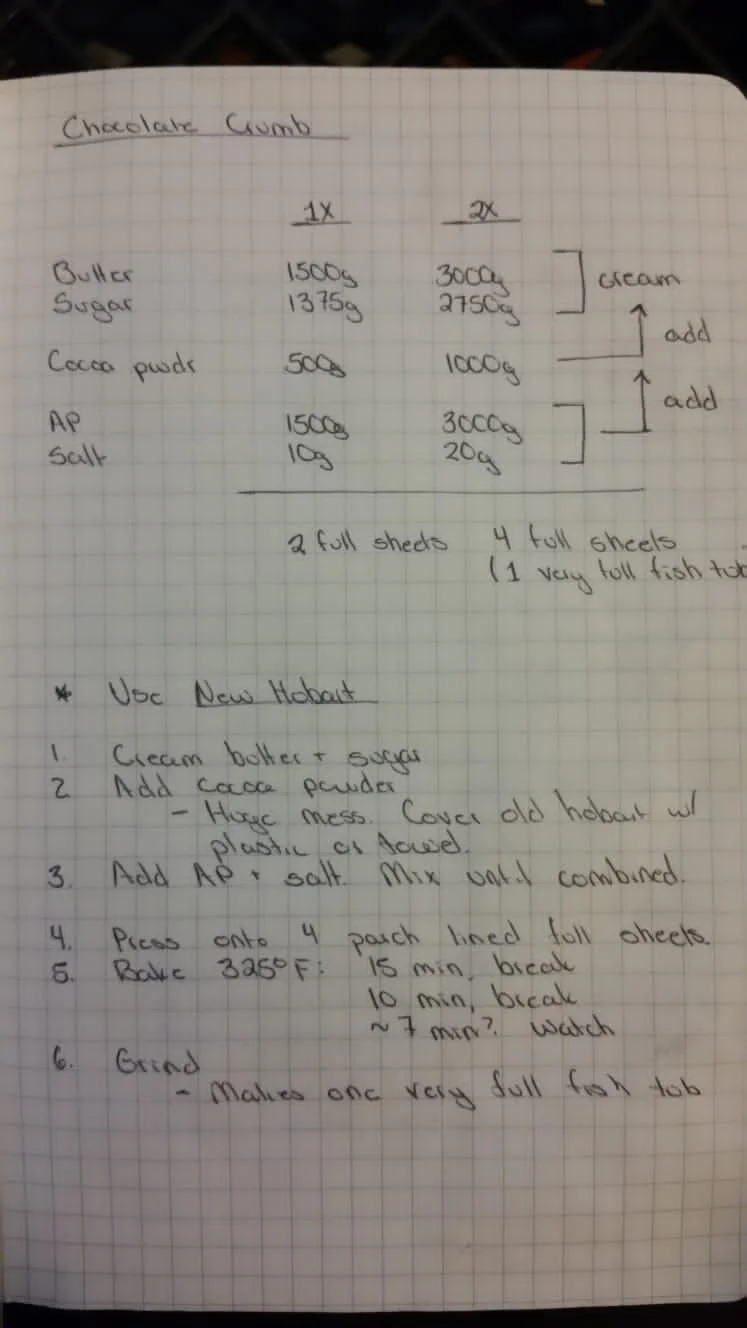 Chocolate Crumb
1X 2X
Butter 1500g 3000g cream
Sugar 1375g 2750g
add
Cocoa pwdr 500g 1000g
add
AP 1500g 3000g
Salt 10g 20g
2 full sheets 4 full sheets
(1 very full fish tub
* Use New Hobart
1. Cream butter + sugar
2 Add cocoa powder
- Huge mess. Cover old hobart w/
plastic or towel.
3. Add AP + salt. Mix until combined.
4. Press onto 4 parch lined full sheets.
5. Bake 325°F: 15 min, break
10 min, break
~7 min? Watch
6. Grind
- Makes one very full fish tub